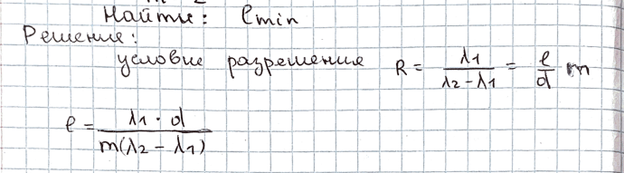 Найти: ℓmin
Решение:
условие разрешения R = λ1 / (λ2 − λ1) = ℓ/d m
ℓ = λ1 · d / m(λ2 − λ1)